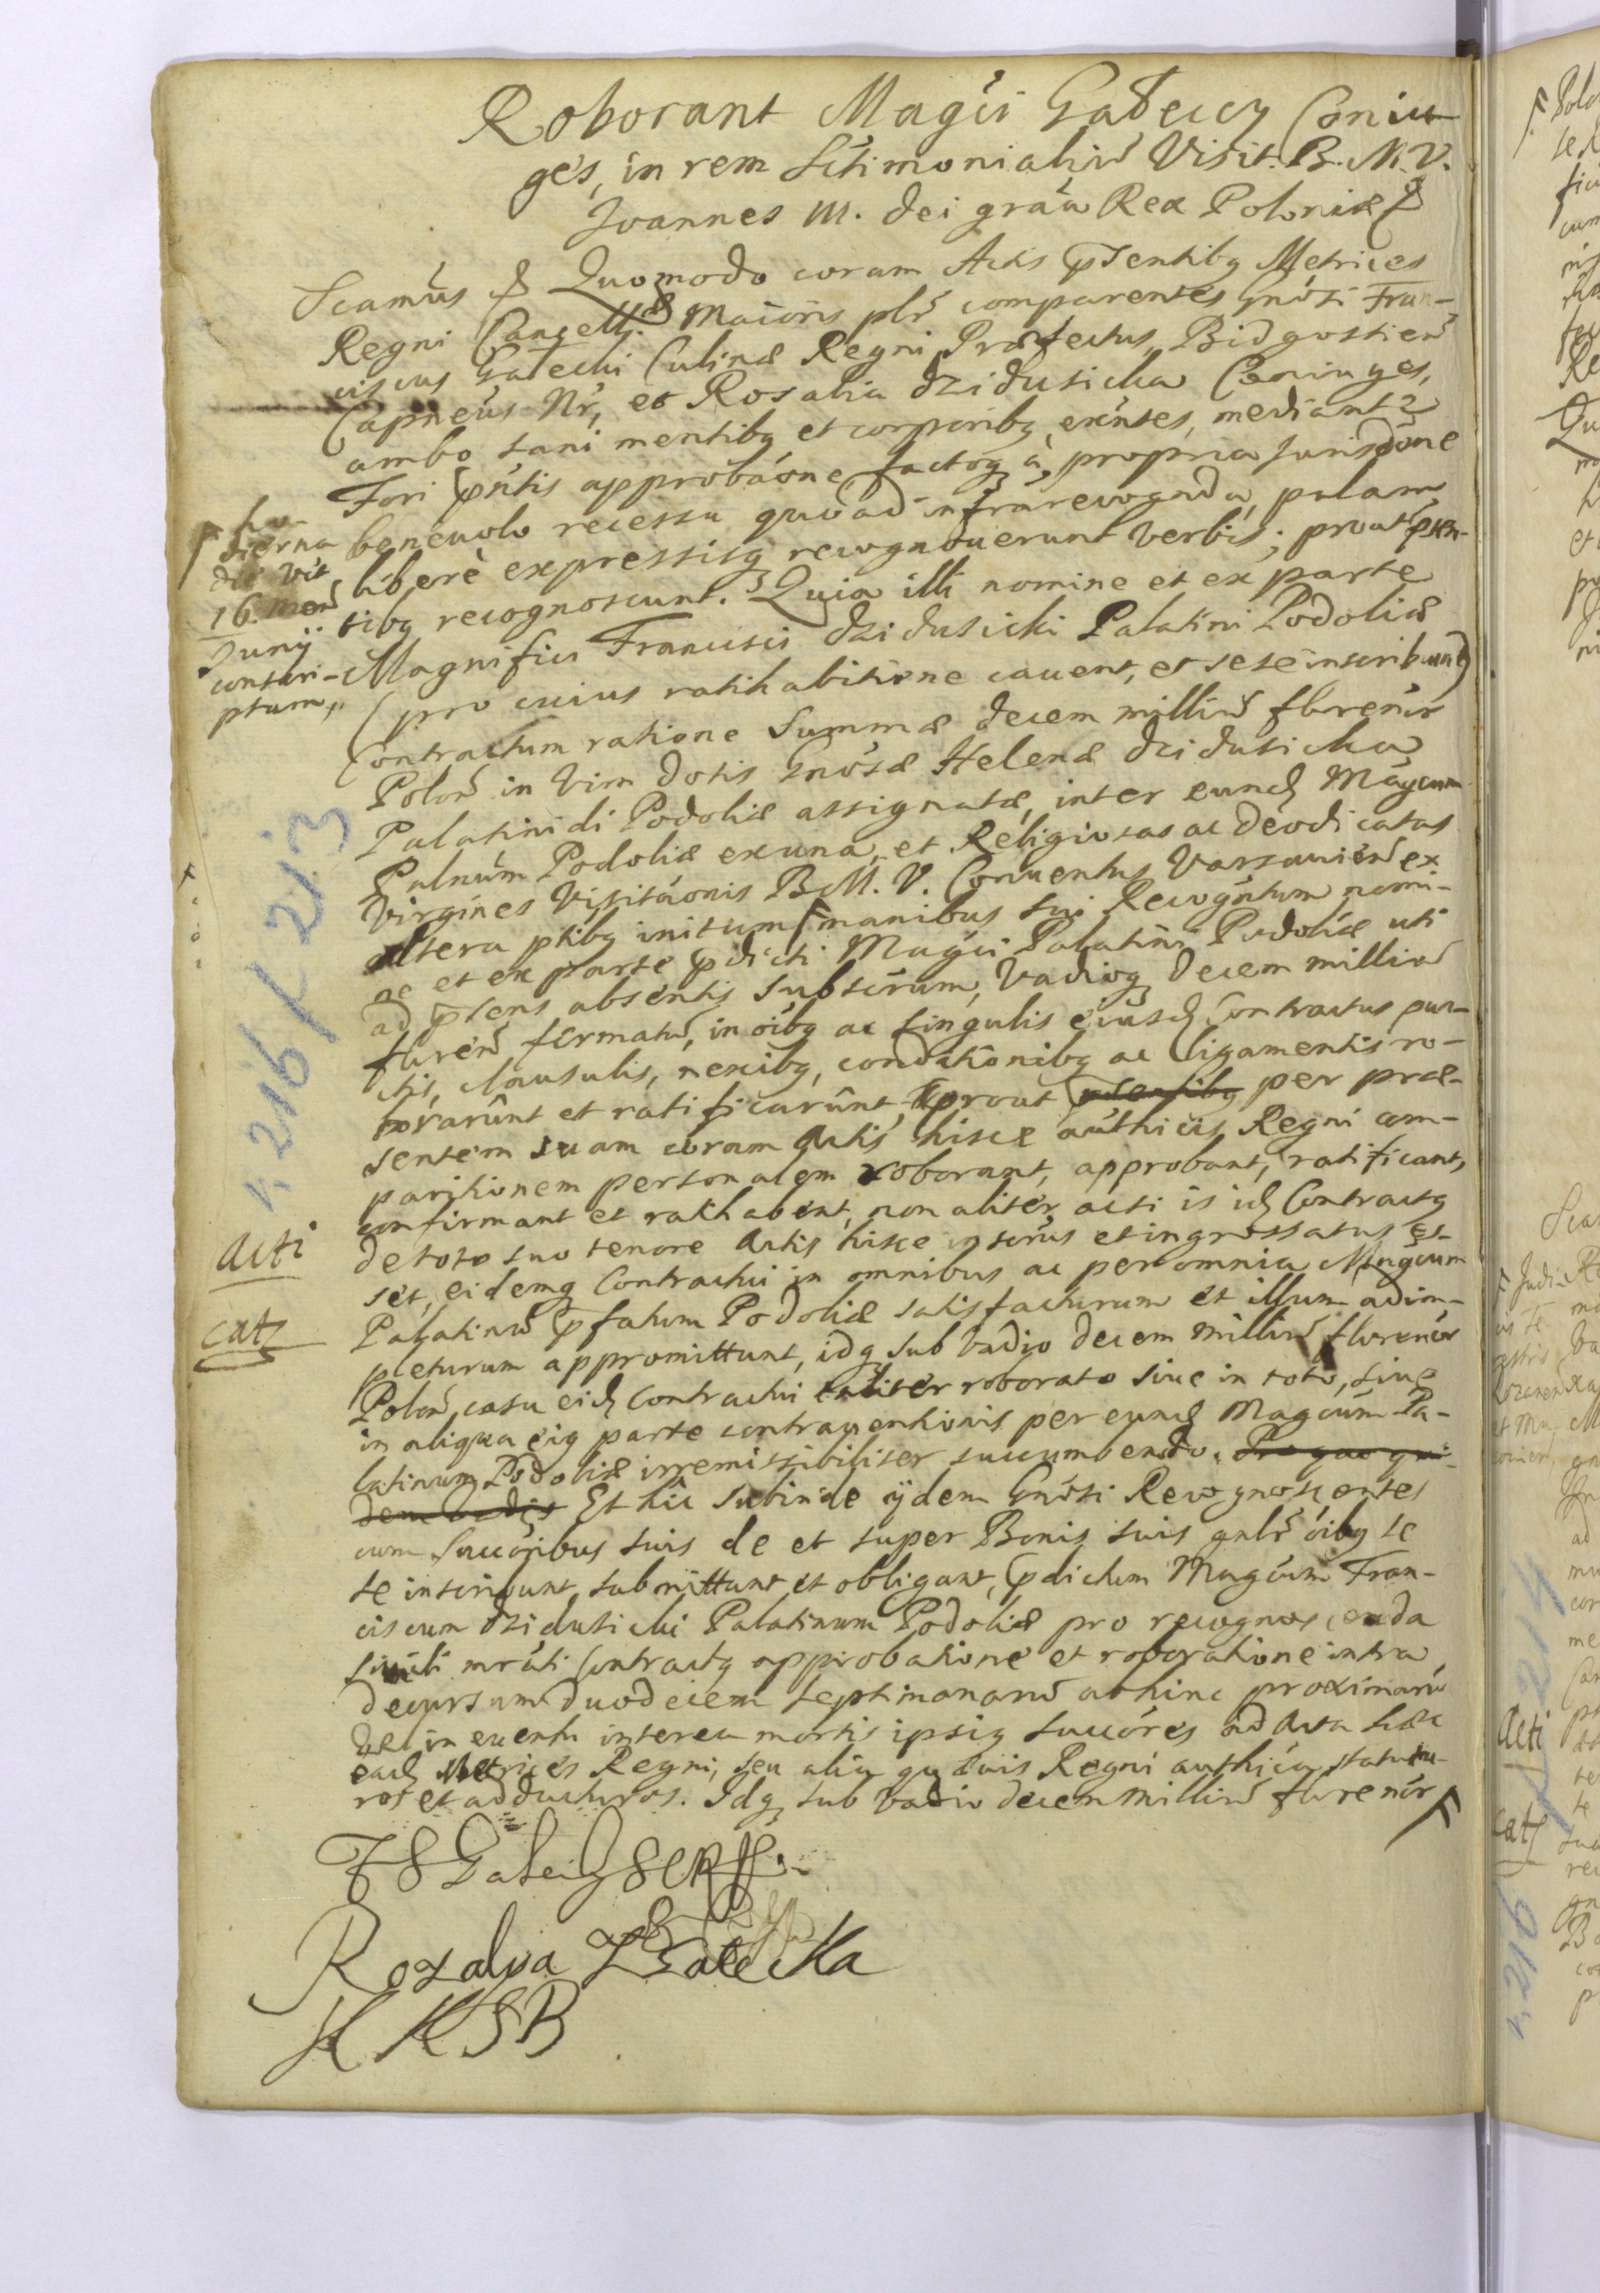 Roborant Mag̃ci Gałeccy Coniu-
ges, in rem Sc̃timonialiũ Visit: B. M. V.
Joannes III. dei gra͠a Rex Poloniæ
Quomodo coram Actis p̃sentibq Metrices
Regni Cancell. Maioris pl̃r comparentes Gñosi Fran-
ciscus Gałecki Culinæ Regni Præfectus, Bidgostieñ
Capneus Nr̃, et Rosalia Dzidusicka Coniuges,
ambo sani mentibq et corporibq exñtes, mediante
Fori p̃ntis approbãone, factoq à propria Jurisdõne
benevolo recessu quoad infrarecognda, palam
liberè expressisq recognoverunt verbis; prout p̃sen-
tibq recognoscunt. Quia illi nomine et ex parte
Magnifici Francisci Dzidusicki Palatini Podoliæ
(pro cuius ratihabitione cavent, et sese inscribunt)
Contractum ratione Summæ decem milliũ florenor
Poloñ in vim dotis Gñosæ Helenæ Dzidusicka
Palatinidi Podoliæ assignatæ, inter eund Mag̃cum
Palnum Podoliæ ex una, et Religiosas ac Deo dicatas
Virgines Visitãonis B. M. V. Conventus Varsavieñ ex
altera p̃tibq initum manibus sui Recog̃ntum nomi-
ne et ex parte p̃dicti Mag̃ci Palatini Podoliæ uti
ad p̃sens absentis subscrũm, vadioq decem milliũ
floreñ firmatũ, in oĩbq ac singulis eiusd Contractus pun-
ctis, clausulis, nexibq, conditionibq ac ligamentis ro-
borarunt et ratificarunt, prout p̃sentibq per præ-
sentem suam coram Actis hisce authcis Regni com-
paritionem personalem roborant, approbant, ratificant,
confirmant et ratihabent, non aliter acti is id Contractq
de toto suo tenore Actis hisce insertus et ingrossatus es-
set, eidemq Contractui in omnibus ac per omnia Mag̃cum
Palatinũ p̃fatum Podoliæ satisfacturum et illum adim-
pleturum appromittunt, idq sub vadio decem milliũ florenor
Poloñ, casu eid Contractui taliter roborato sive in toto, sive
in aliqua eiq parte contraventionis per eund Magcum Pa-
latinum Podoliæ irremissibiliter succumbendo. Pro quo qui-
dem vadio Et hic subinde ijdem Gñosi Recognoscentes
cum Succoribus suis de et super Bonis suis gnlr oĩbq se
se inscribunt, submittunt et obligant, p̃dictum Magcum Fran-
ciscum Dzidusicki Palatinum Podoliæ pro recognoscenda
simili mrãti Contractq approbatione et roboratione intra
decursum duodecem septimanarũ ab hinc proximarũ
vel in eventu interea mortis ipsiq succores ad Acta hæc
ead Metrices Regni, seu alia quævis Regni authca statutu-
ros et adducturos. Idq sub vadio decem milliũ florenor
ho-
dierna
die vit
16. mens
Junij
conscri-
ptum,
Acti
cat
1, 216 / 213
Rozalya Gałecka
K K S B